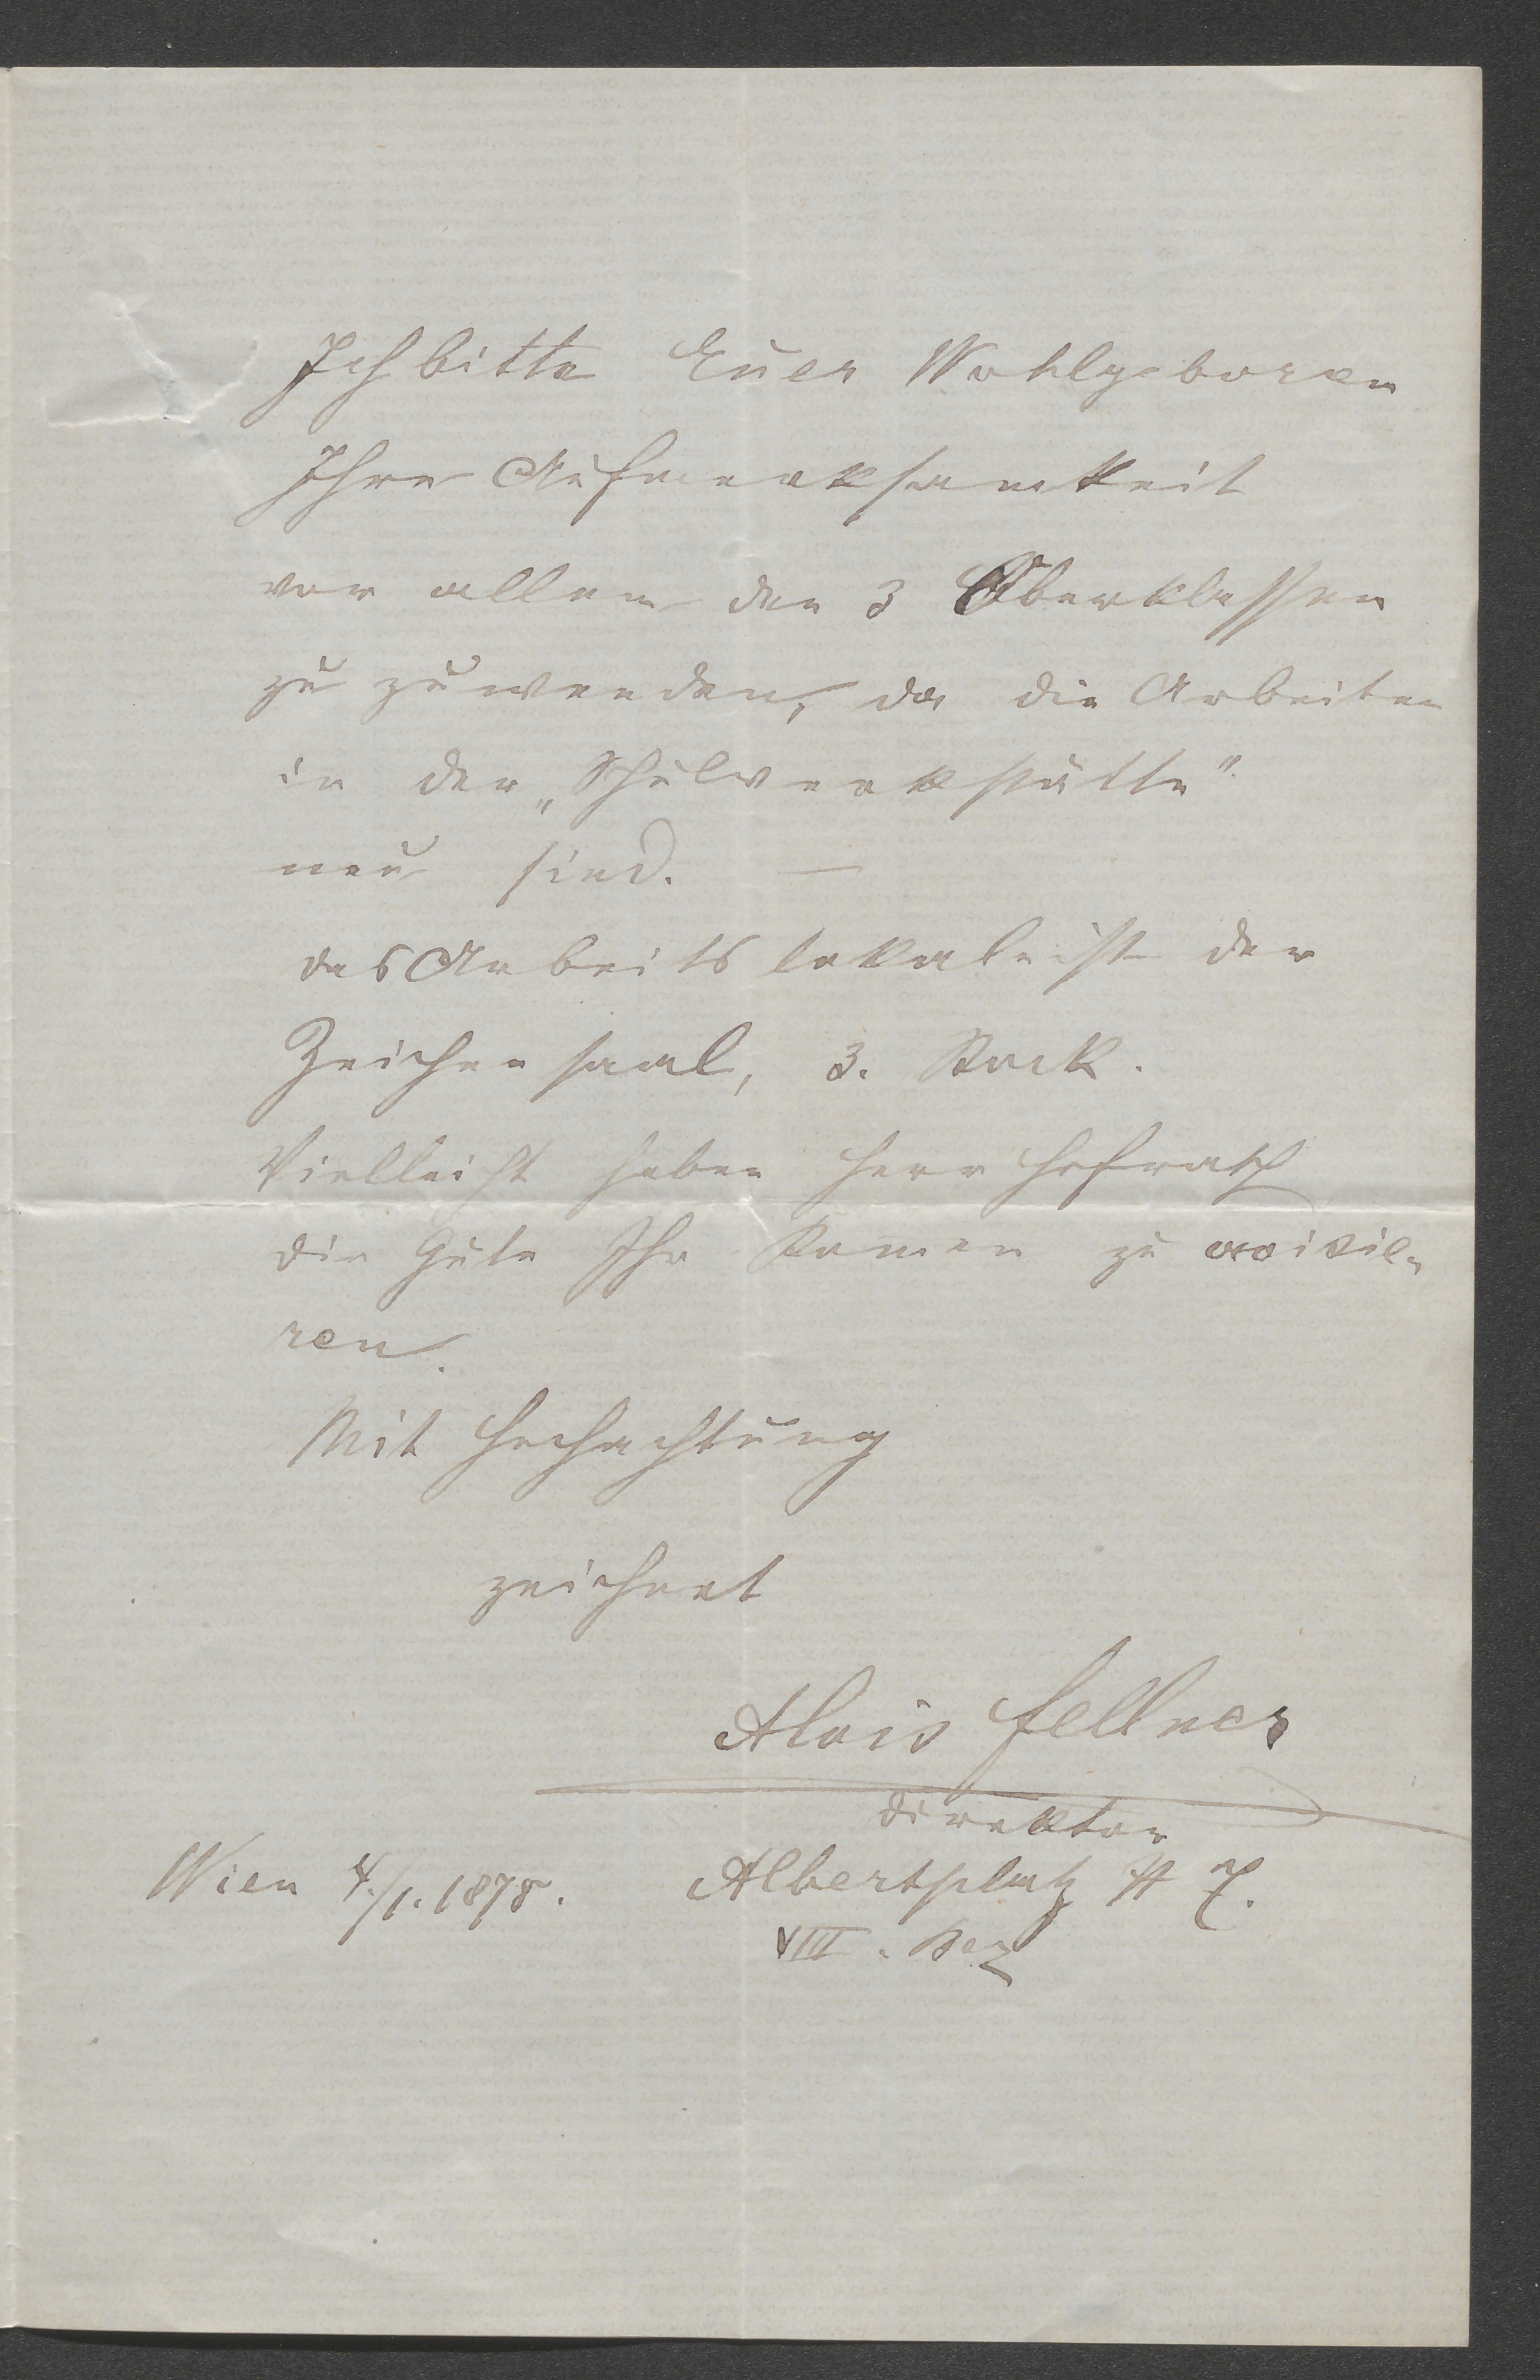 Ich bitte Euer Wohlgeboren
Ihre Aufmerksamkeit
vor allem den 3 Oberklassen
zu zuwenden, da die Arbeiten
in der „Schulwerkstätte"
neu sind. —
das Arbeitslokale ist der
Zeichensaal, 3. Stock.
Vielleicht haben Herr Hofrath
die Güte Ihr Komen zu
ren.
Mit Hochachtung
zeichnet
Alois Fellner
Direktor
Wien 4./1. 1878. Albertplatz 7.
VIII. Bez